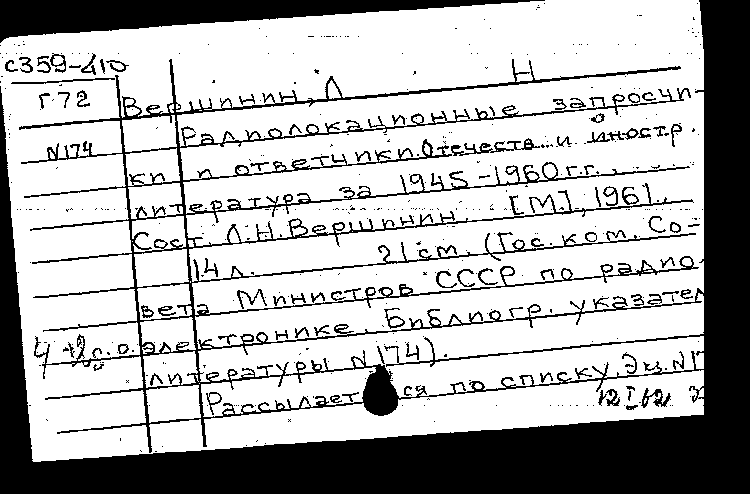 с359-410
Г72
Вершинин, Л Н
N174
Радиолокационные запросчи-
ки и ответчики. Отечеств. и иностр.
литература за 1945-1960 г.г.
Сост. Л.Н. Вершинин. [М], 1961.,
14 л. 21 см. (Гос. ком. Со-
вета Министров СССР по радио-
электронике. Библиогр. указател
литературы N174).
Рассылается по списку. Экз. N17
12 I 62